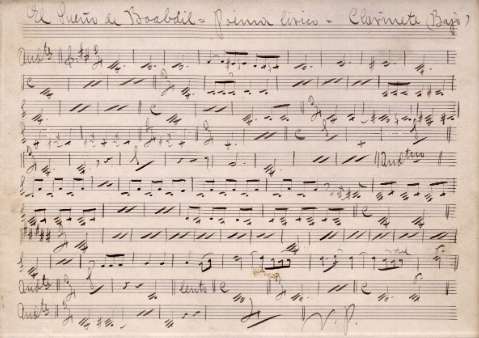 El Sueño de Boabdil = Poema lírico - Clarinete (Bajo)
Andte
Andtino
Andte
Lento
Andte
V. P.